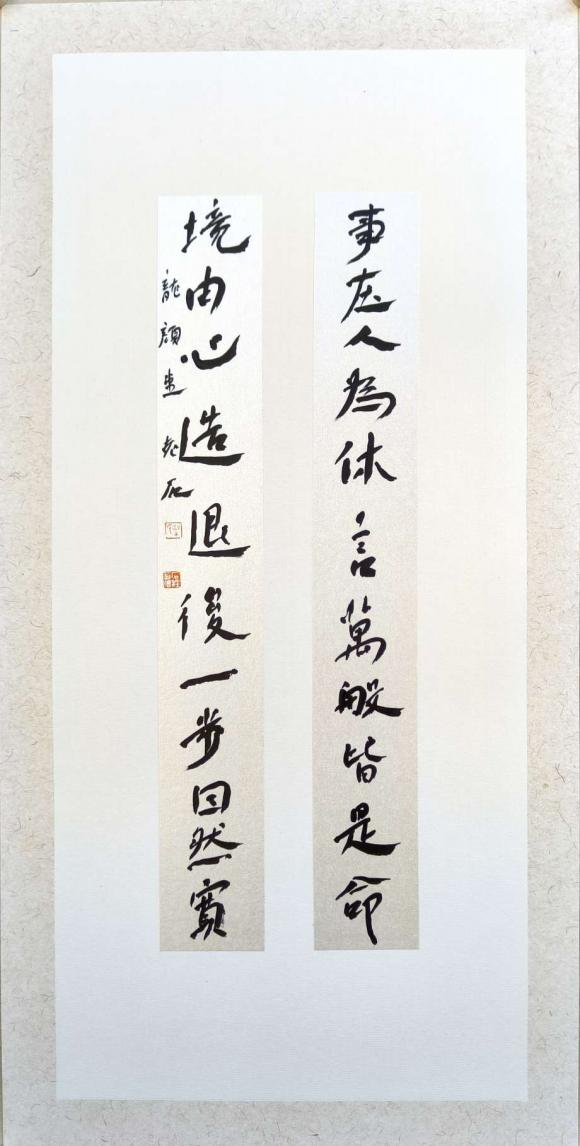 事在人為休言萬般皆是命
境由心造退後一步自然寬
龍顏書 老石